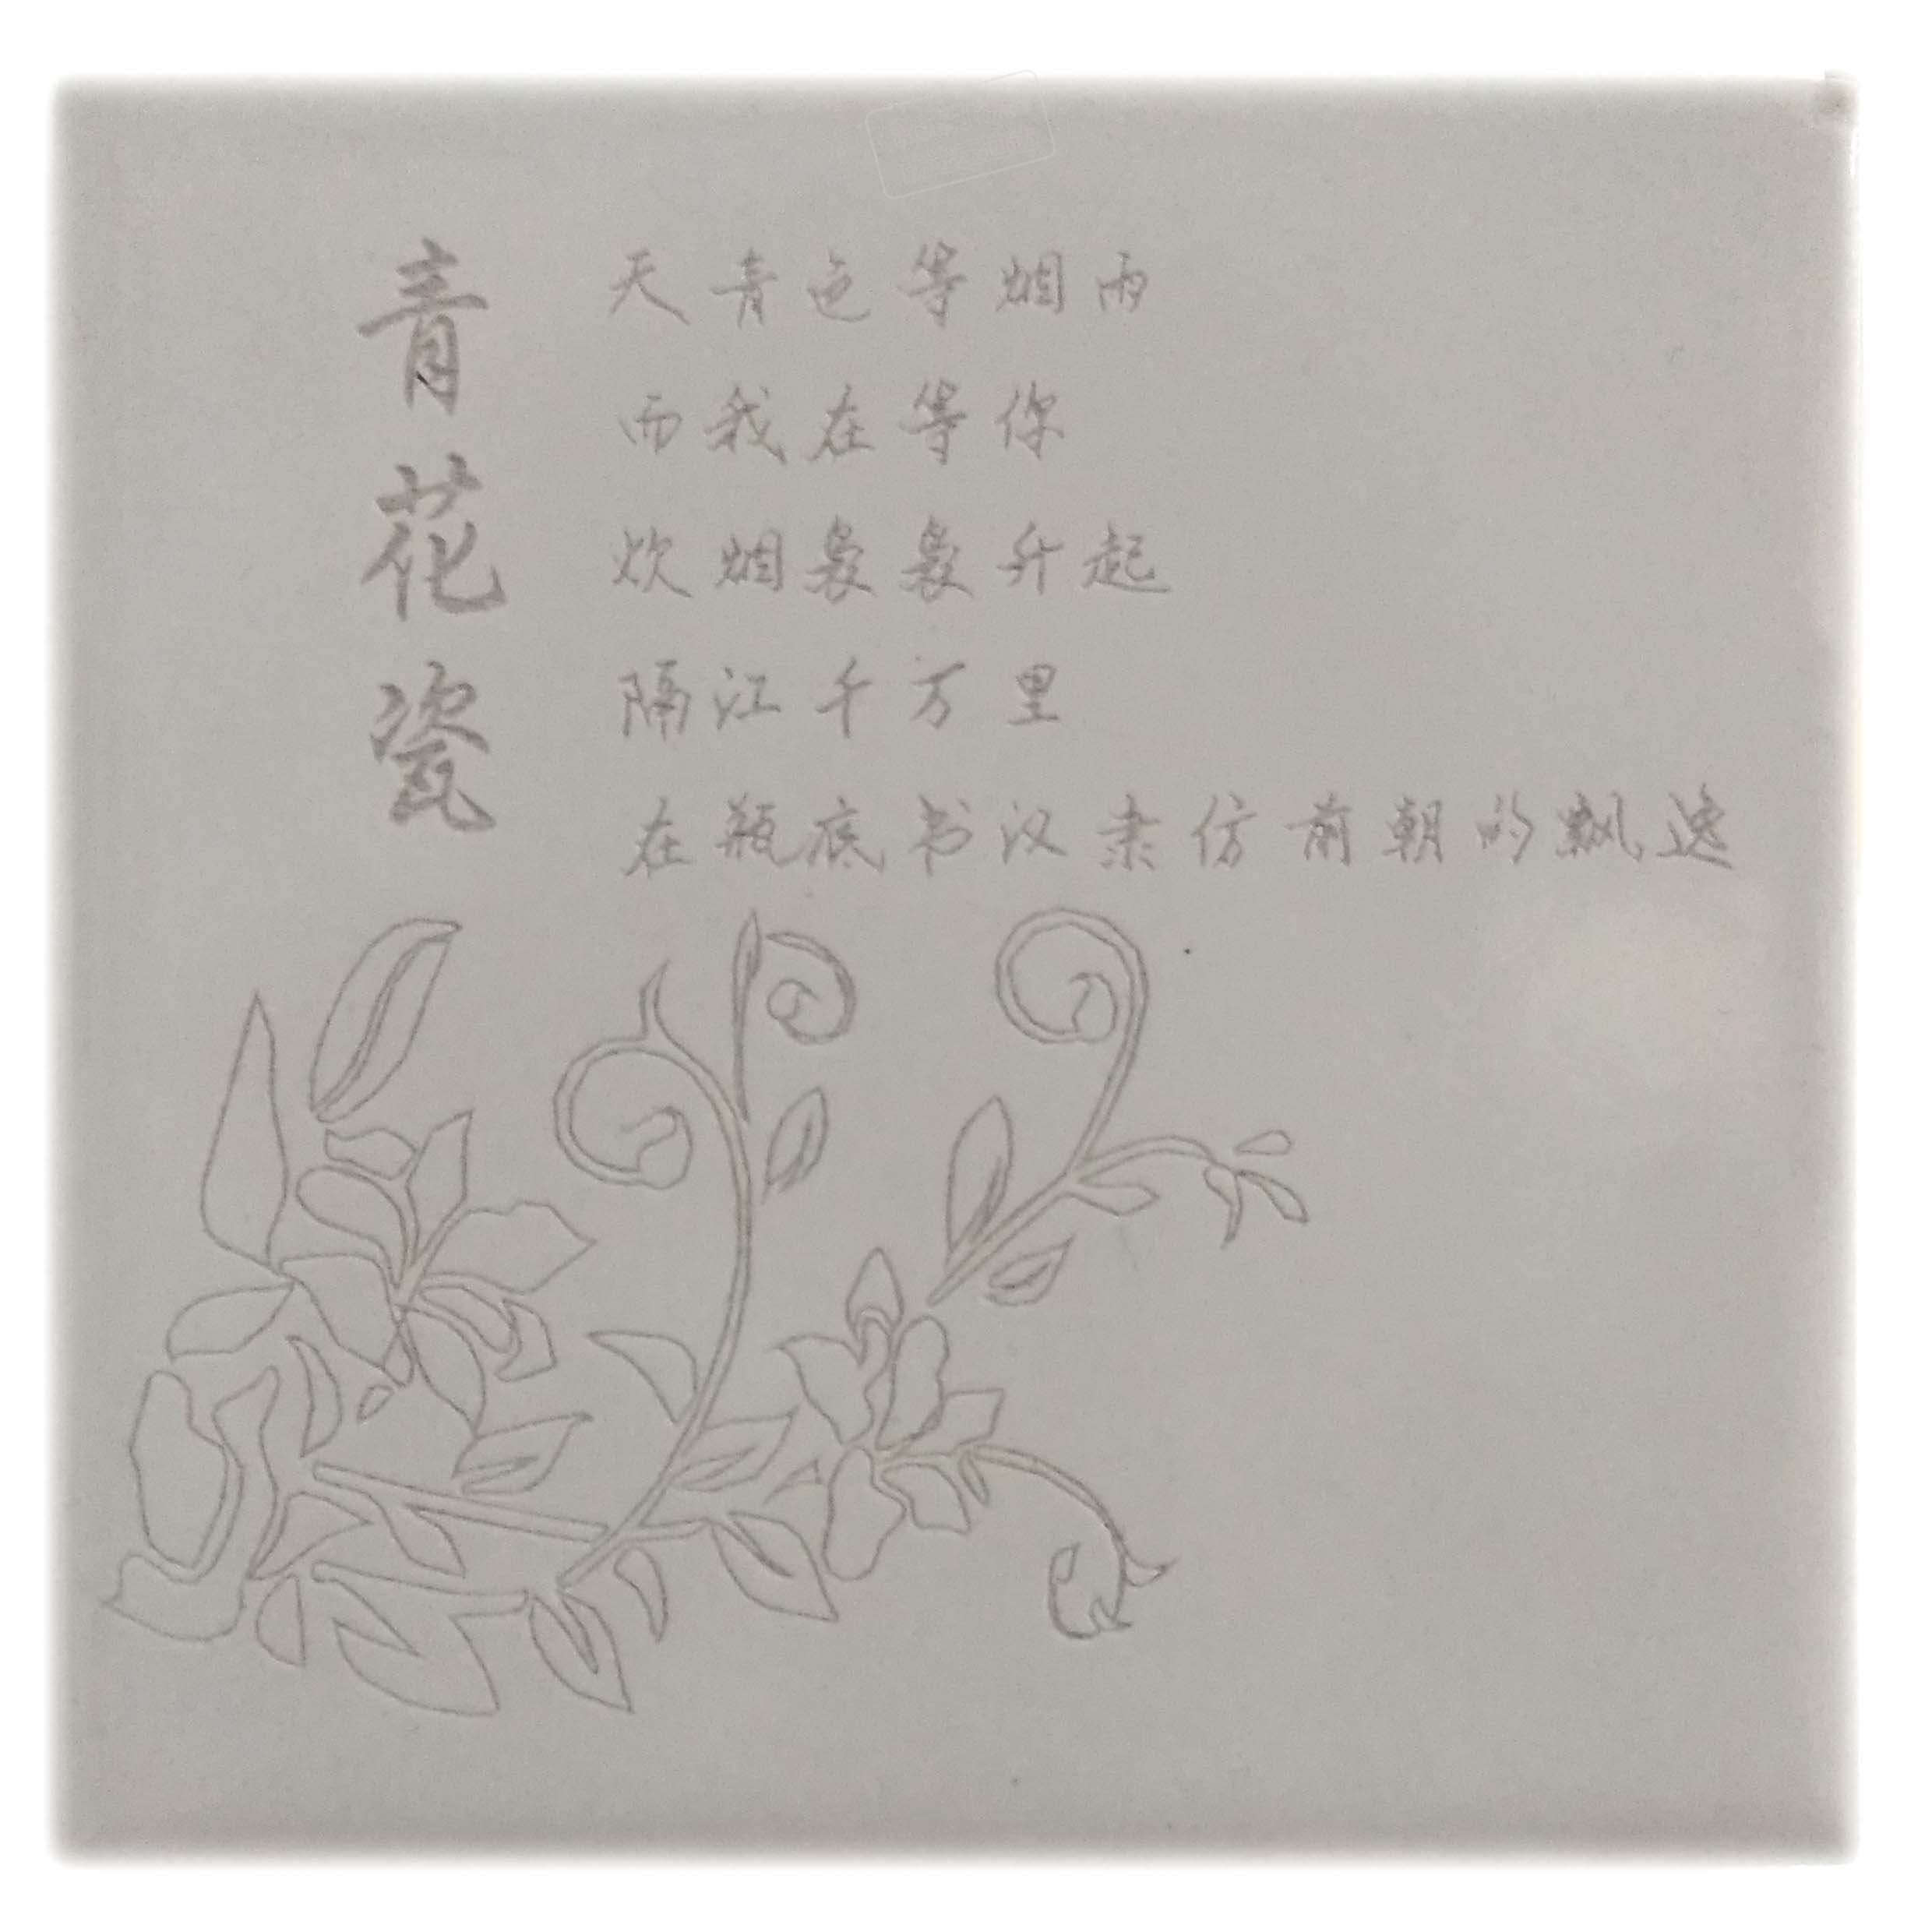 青花瓷
天青色等烟雨
而我在等你
炊烟袅袅升起
隔江千万里
在瓶底书汉隶仿前朝的飘逸